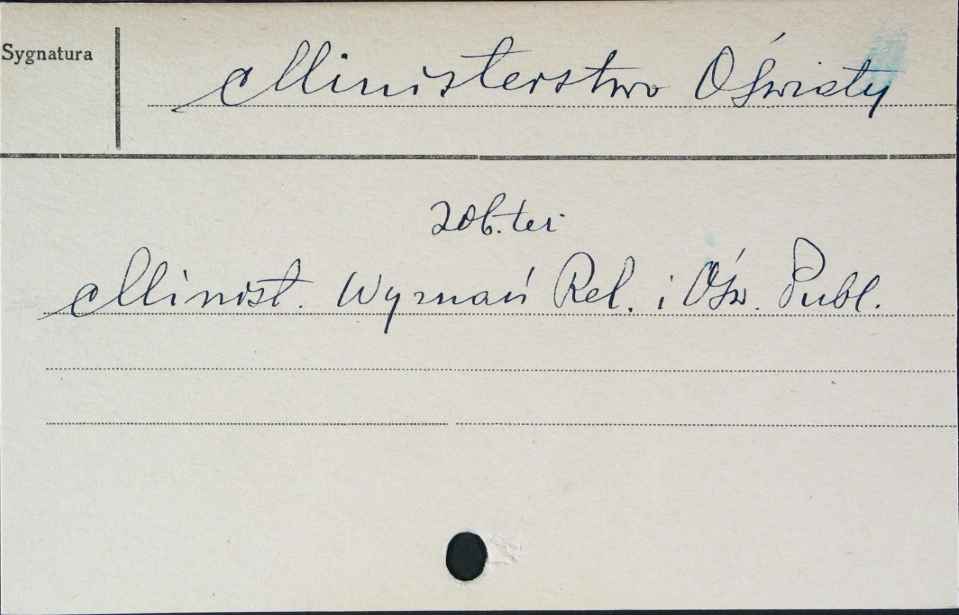 Sygnatura
Ministerstwo Oświaty
zob. też
Minist. Wyznań Rel. i Ośw. Publ.